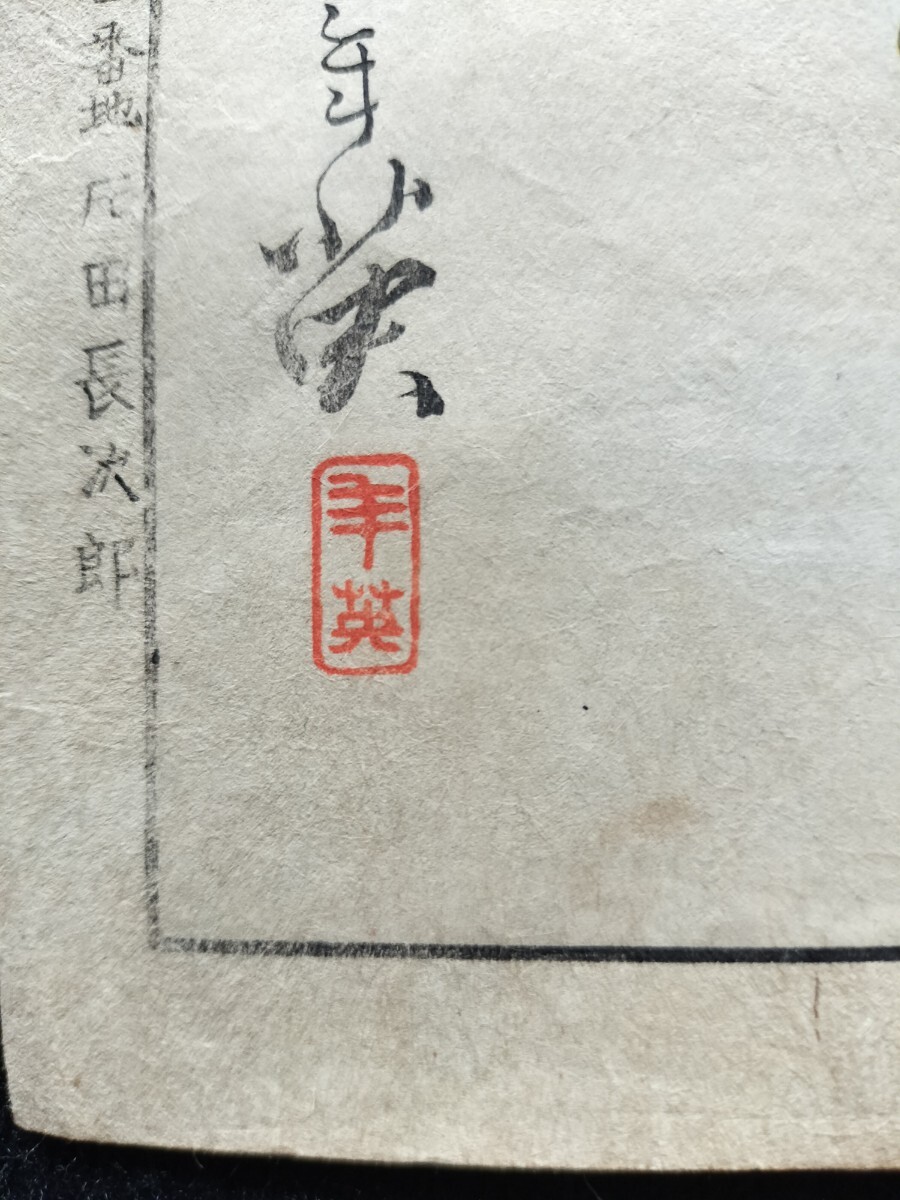 年英
年英
番地 尾田長次郎